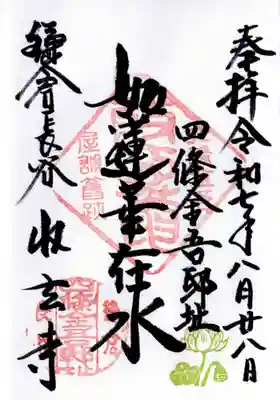 奉拝令和七年八月廿八日
四條金吾邸址
如蓮華在水
鎌倉長谷
收玄寺
屋敷舊跡